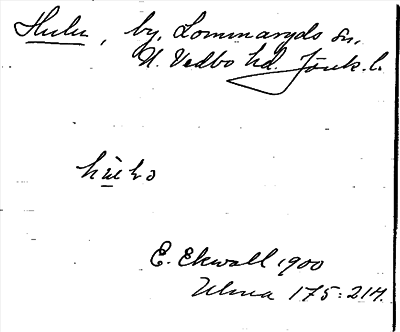 Hulu, by, Lommaryds sn,
N. Vedbo hd. Jönk. l.
E. Ekwall 1900
Ulma 175:214.